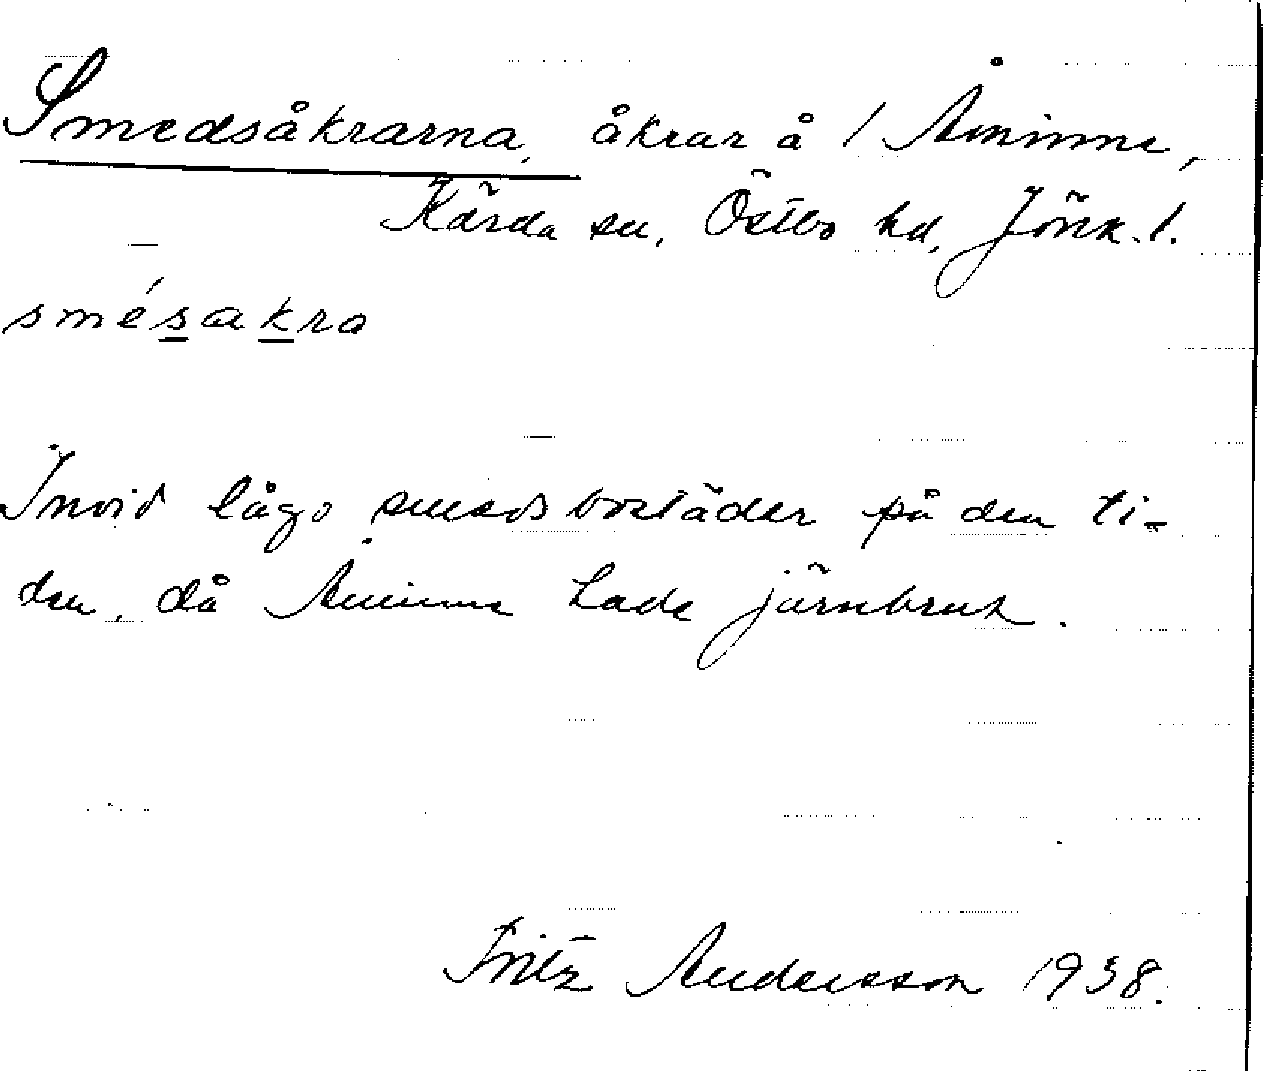 Smedsåkrarna, åkrar å / Åminne,
Kärda sn, Östbo hd, Jönk. l.
smésakra
Invid lågo smedsbostäder på den ti-
den, då Åminne hade järnbruk.
Fritz Andersson 1938.